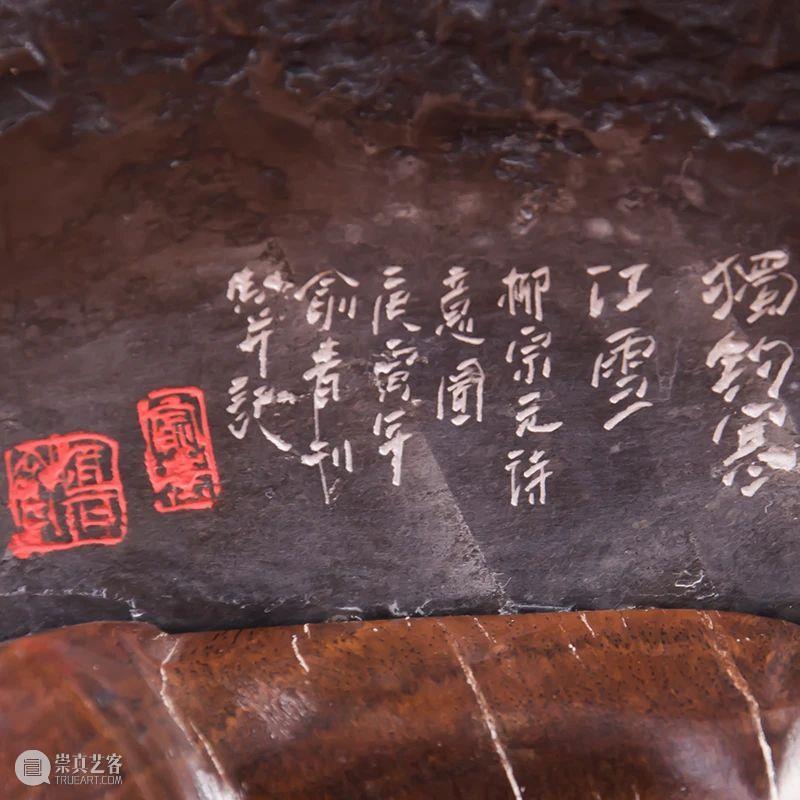 獨釣寒
江雪
柳宗元詩
意圖
庚寅年
俞青刊
并記
俞青
崇真艺客
TRUEART.COM